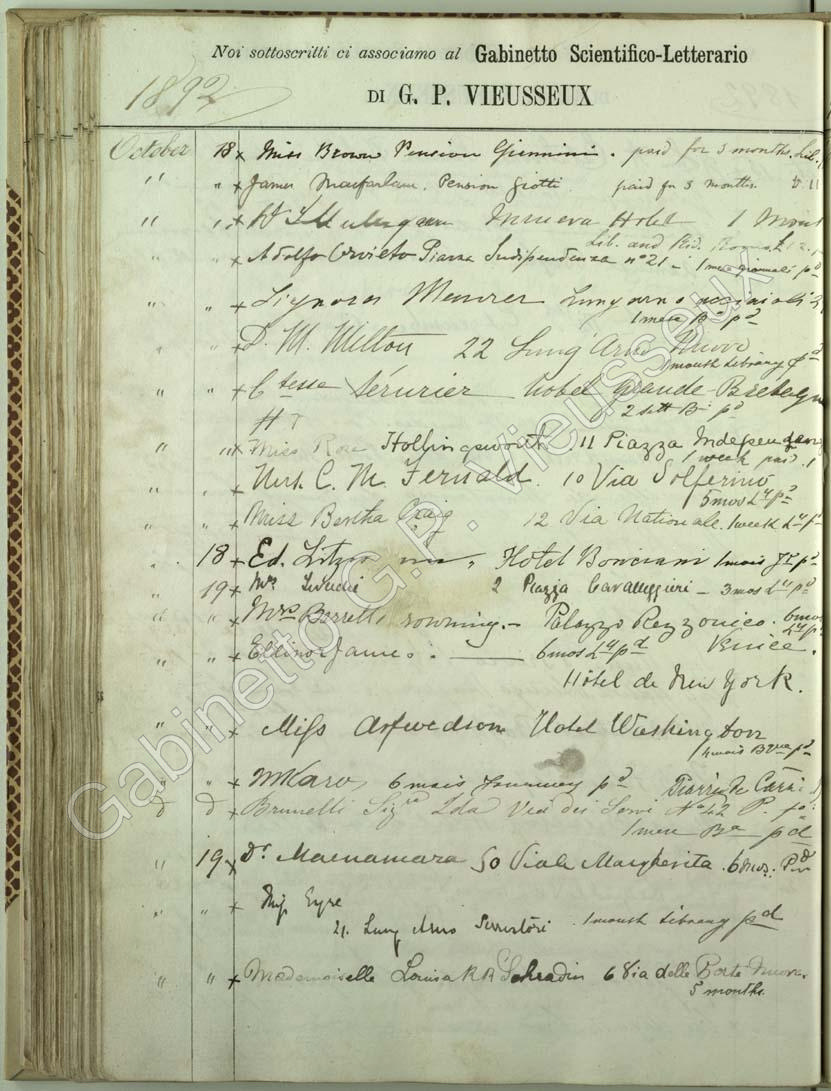 Noi sottoscritti ci associamo al Gabinetto Scientifico-Letterario
1892
DI G. P. VIEUSSEUX
October 18 x Miss Brown Pension Giannini . paid for 3 months. Lib.
" " x James Macfarlane. Pension Giotti paid for 3 months.
" " x Minerva Hotel 1 Mont
Lib. and Rd. Rooms
" x Adolfo Orvieto Piazza Indipendenza n° 21 - 1 mese giornali pd
" " x Signora Meurer Lungarno Acciaioli
1 mese Ba pd
" " x D. M. Milton 22 Lung'Arno Nuovo
1 month Library pd
" " x Ctesse Sérurier hotel Grande-Bretagn
2 sett Bi pd
" " x Miss Rose Hollingsworth . 11 Piazza Independen
1 week paid.
" " x Mrs. C. M. Fernald . 10 Via Solferino
5 mos Ly pd
" " x Miss Bertha Craig 12 Via Nationale. 1 week Ly pd
" 18 x Ed. Hotel Bonciani 1 mois Jx pd
" 19 x Mrs 2 Piazza Cavalleggieri - 3 mos Ly pd
d " x Mrs Barrett Browning. - Palazzo Rezzonico. 6 mos
Ly pd
" " x Ellinor James. 6 mos Ly pd Venice.
Hôtel de New York.
" " x Miss Arfwedson Hotel Washington
mois Bque pd
" " x 6 mois Journaux pd
d d x Brunelli Sigra Ida Via dei Servi No 42 P. po
1 mese Ba pd
" 19 x Dr Macnamara 50 Viale Margherita . 6 mos. Pd
" " x Miss Eyre
21. Lung Arno Serristori . 1 month Library pd
" " x Mademoiselle Louisa Schradin 6 Via delle Porte Nuove.
5 months.
Gabinetto G.P. Vieusseux